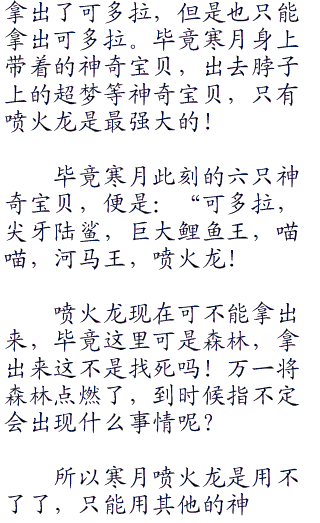 拿出了可多拉，但是也只能
拿出可多拉。毕竟寒月身上
带着的神奇宝贝，出去脖子
上的超梦等神奇宝贝，只有
喷火龙是最强大的！
毕竟寒月此刻的六只神
奇宝贝，便是：“可多拉，
尖牙陆鲨，巨大鲤鱼王，喵
喵，河马王，喷火龙！
喷火龙现在可不能拿出
来，毕竟这里可是森林，拿
出来这不是找死吗！万一将
森林点燃了，到时候指不定
会出现什么事情呢？
所以寒月喷火龙是用不
了了，只能用其他的神